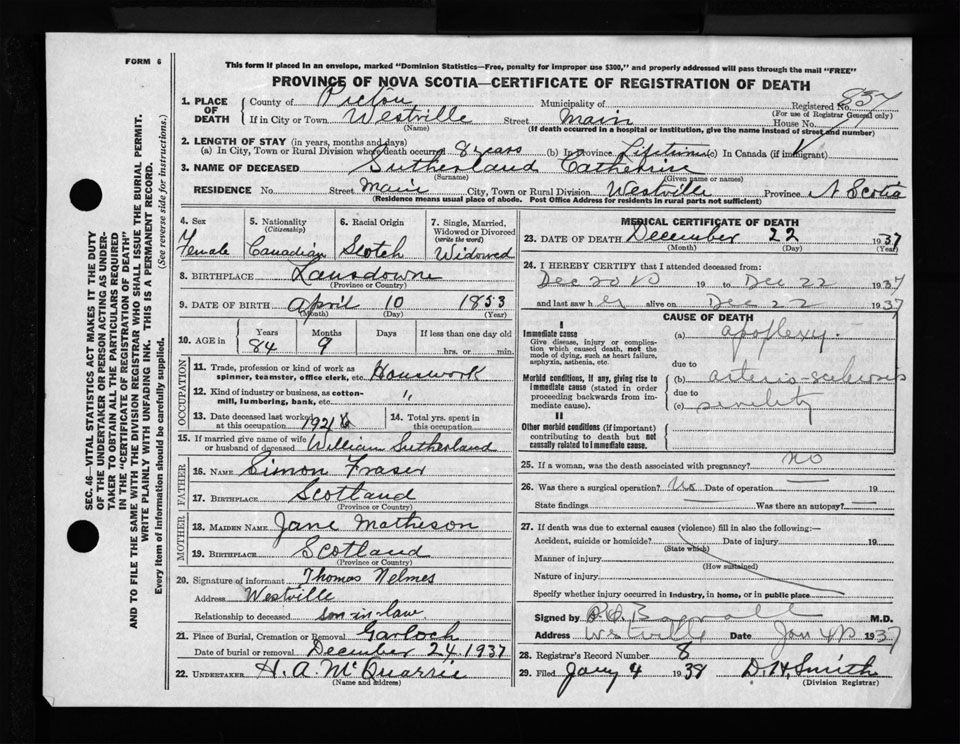 FORM 6
This form if placed in an envelope, marked "Dominion Statistics—Free, penalty for improper use $300," and properly addressed will pass through the mail "FREE"
PROVINCE OF NOVA SCOTIA—CERTIFICATE OF REGISTRATION OF DEATH
1. PLACE OF DEATH
County of Pictou Municipality of Registered No. 837
(For use of Registrar General only)
If in City or Town Westville Street Main House No.
(Name) (If death occurred in a hospital or institution, give the name instead of street and number)
2. LENGTH OF STAY (in years, months and days)
(a) In City, Town or Rural Division where death occurred 8 years (b) In Province Lifetime (c) In Canada (if immigrant)
3. NAME OF DECEASED Sutherland Catherine
(Surname) (Given name or names)
RESIDENCE No. Street Main City, Town or Rural Division Westville Province N Scotia
(Residence means usual place of abode. Post Office Address for residents in rural parts not sufficient)
4. Sex Female
5. Nationality (Citizenship) Canadian
6. Racial Origin Scotch
7. Single, Married, Widowed or Divorced (write the word) Widowed
8. BIRTHPLACE Lansdowne
(Province or Country)
9. DATE OF BIRTH April 10 1853
(Month) (Day) (Year)
10. AGE in Years Months Days If less than one day old
84 9 hrs. or min.
OCCUPATION
11. Trade, profession or kind of work as spinner, teamster, office clerk, etc. Housework
12. Kind of industry or business, as cotton-mill, lumbering, bank, etc. "
13. Date deceased last worked at this occupation 1921
14. Total yrs. spent in this occupation
15. If married give name of wife or husband of deceased William Sutherland
FATHER
16. NAME Simon Fraser
17. BIRTHPLACE Scotland
(Province or Country)
MOTHER
18. MAIDEN NAME Jane Matheson
19. BIRTHPLACE Scotland
(Province or Country)
20. Signature of informant Thomas Nelmes
Address Westville
Relationship to deceased son-in-law
21. Place of Burial, Cremation or Removal Garloch
Date of burial or removal December 24, 1937
22. UNDERTAKER H. A. McQuarrie
(Name and address)
MEDICAL CERTIFICATE OF DEATH
23. DATE OF DEATH December 22 1937
(Month) (Day) (Year)
24. I HEREBY CERTIFY that I attended deceased from:
Dec 20 19 to Dec 22 1937
and last saw her alive on Dec 22 1937
CAUSE OF DEATH
I
Immediate cause
Give disease, injury or complication which caused death, not the mode of dying, such as heart failure, asphyxia, asthenia, etc.
(a) apoplexy.
due to
Morbid conditions, if any, giving rise to immediate cause (stated in order proceeding backwards from immediate cause).
(b) arterio sclerosis
due to
(c) senility
II
Other morbid conditions (if important) contributing to death but not causally related to immediate cause.
25. If a woman, was the death associated with pregnancy? no
26. Was there a surgical operation? No Date of operation — 19
State findings — Was there an autopsy? —
27. If death was due to external causes (violence) fill in also the following:—
Accident, suicide or homicide? Date of injury 19
(State which)
Manner of injury
(How sustained)
Nature of injury
Specify whether injury occurred in industry, in home, or in public place
Signed by M.D.
Address Westville Date Jan 4 1937
28. Registrar's Record Number 8
29. Filed Jany 4 1938 D. H. Smith
(Division Registrar)
SEC. 46—VITAL STATISTICS ACT MAKES IT THE DUTY
OF THE UNDERTAKER OR PERSON ACTING AS UNDER-
TAKER TO OBTAIN ALL THE PARTICULARS REQUIRED
IN THE "CERTIFICATE OF REGISTRATION OF DEATH"
AND TO FILE THE SAME WITH THE DIVISION REGISTRAR WHO SHALL ISSUE THE BURIAL PERMIT.
WRITE PLAINLY WITH UNFADING INK. THIS IS A PERMANENT RECORD.
Every item of Information should be carefully supplied. (See reverse side for instructions.)